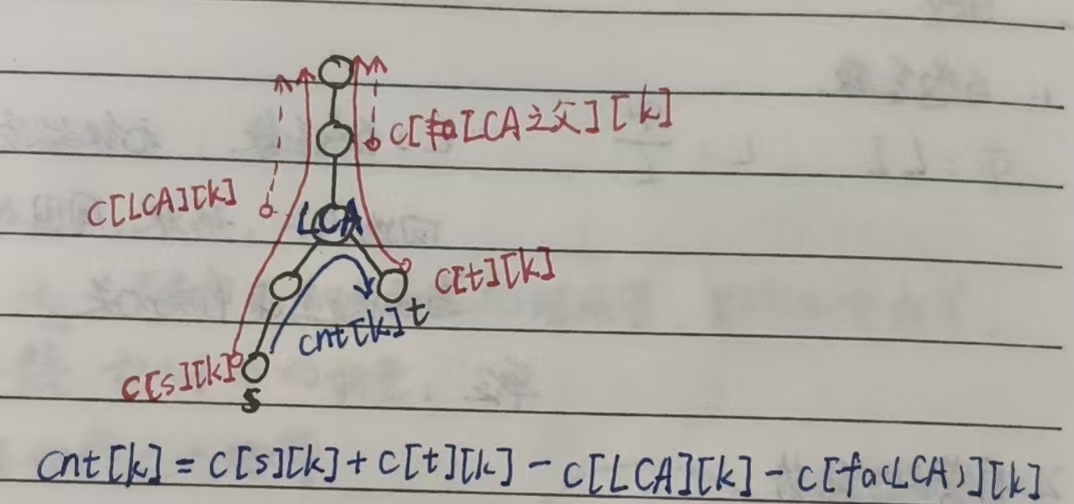 C[LCA之父][k]
C[LCA][k]
LCA
C[t][k]
t
cnt[k]
C[s][k]
s
cnt[k] = C[s][k] + C[t][k] - C[LCA][k] - C[fa(LCA)][k]